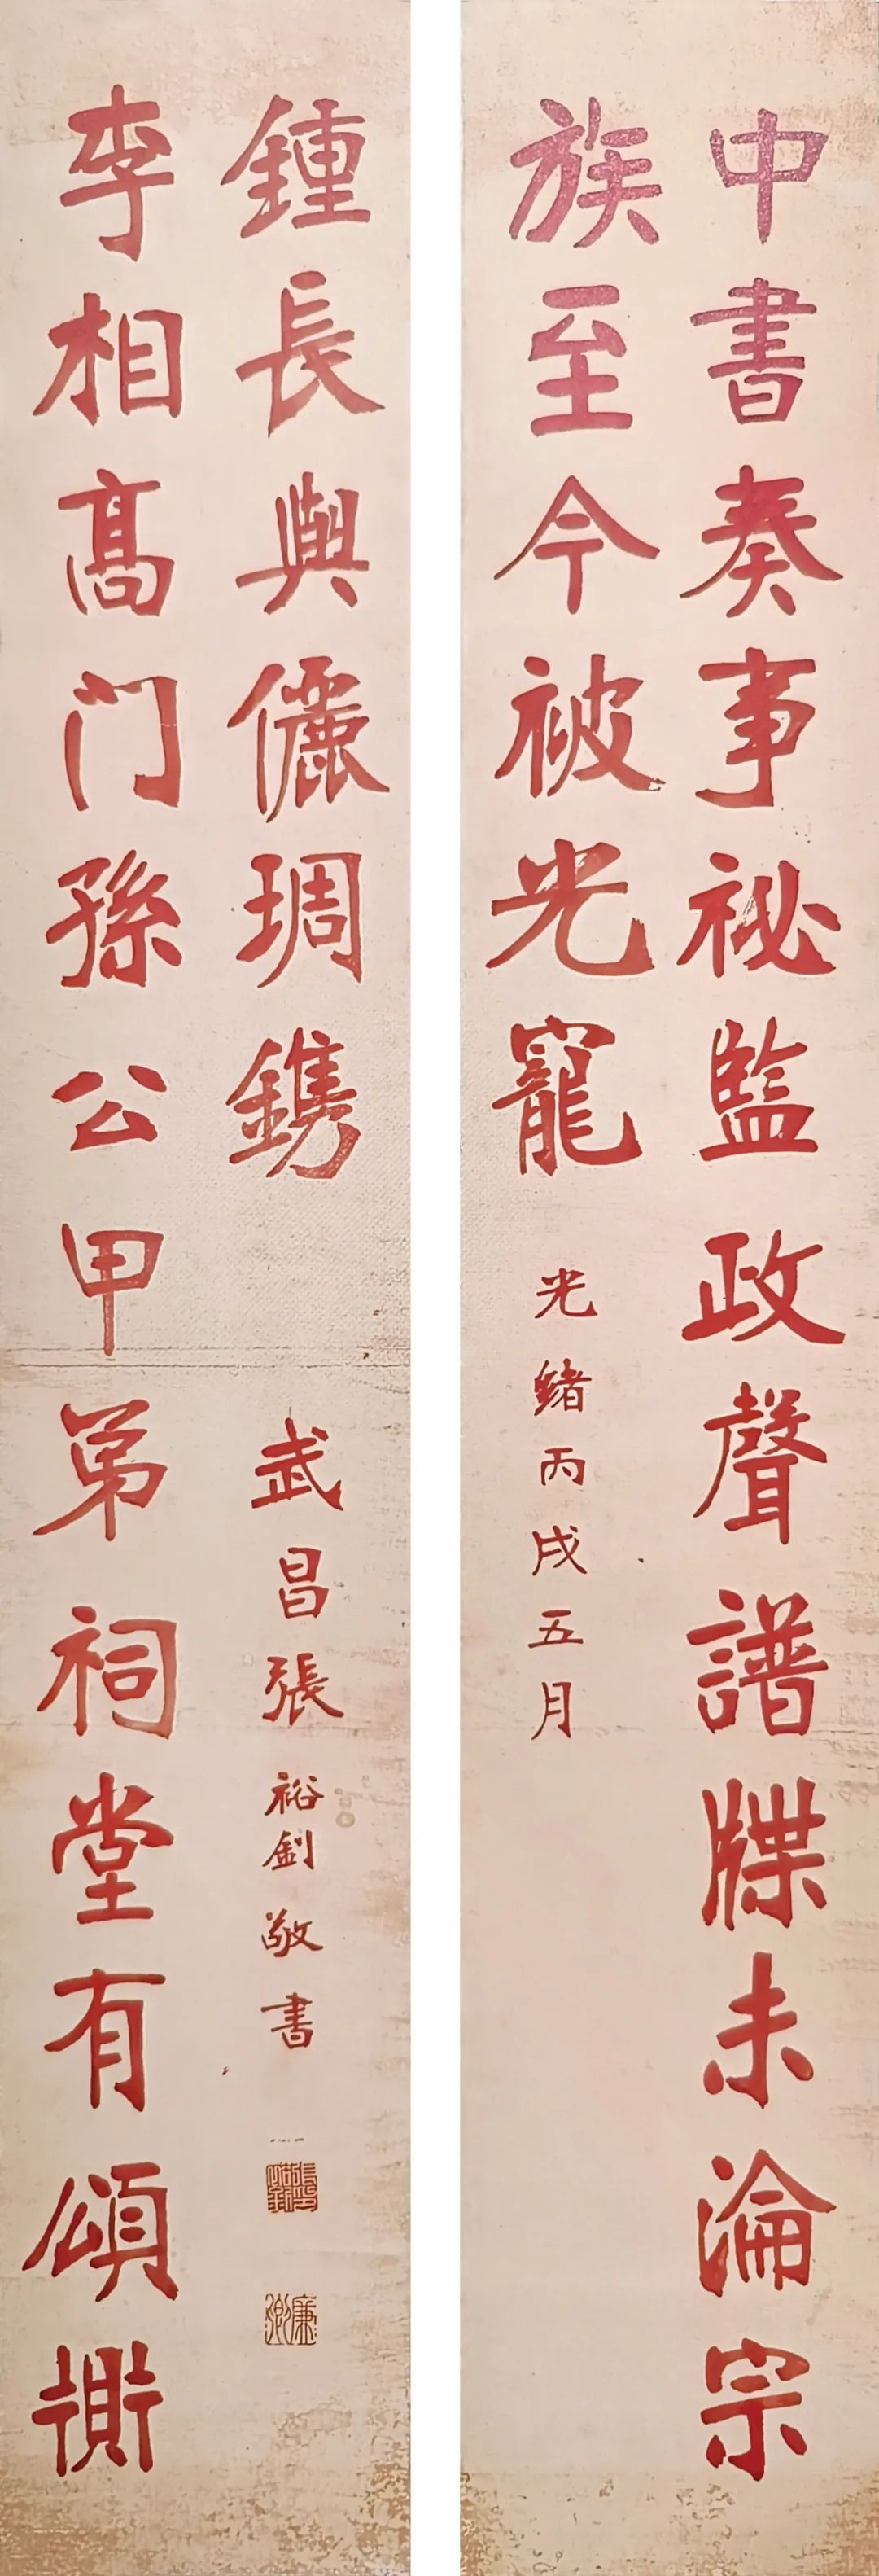 中書奏事祕監政聲譜牒未淪宗
族至今被光寵
光緒丙戌五月
李相髙门孫公甲弟祠堂有頌衡
鍾長與儷琱鐫
武昌張裕釗敬書
廉卿